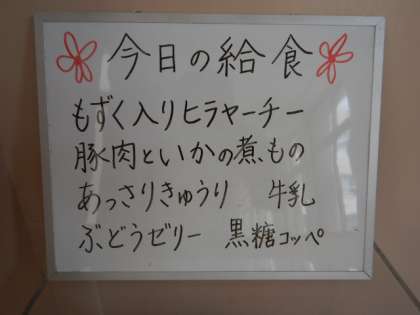 今日の給食
もずく入りヒラヤーチー
豚肉といかの煮もの
あっさりきゅうり 牛乳
ぶどうゼリー 黒糖コッペ